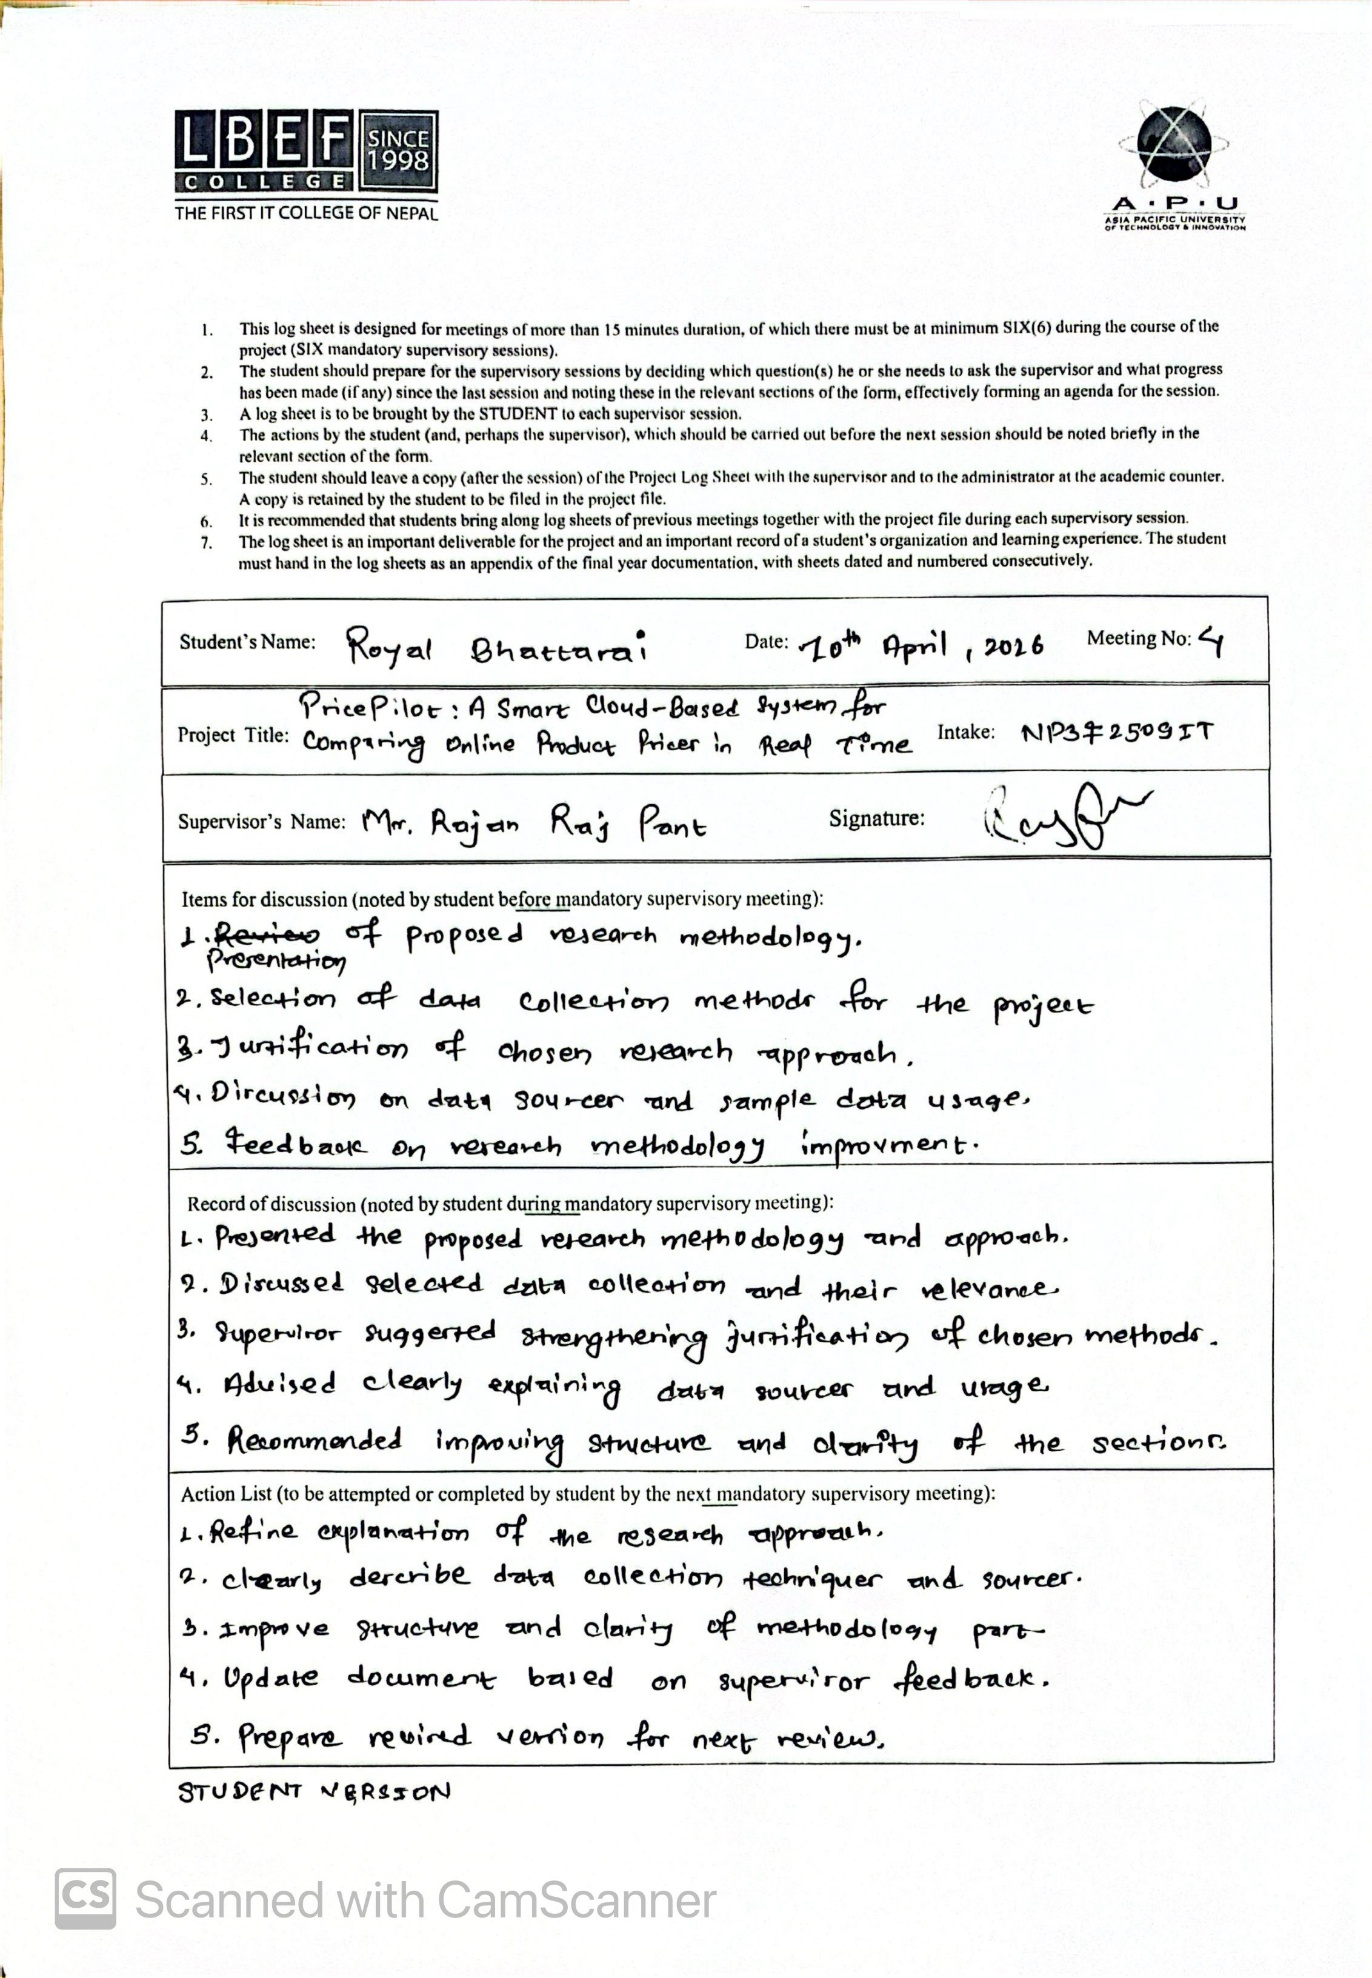 LBEF SINCE 1998
COLLEGE
THE FIRST IT COLLEGE OF NEPAL
A·P·U
ASIA PACIFIC UNIVERSITY
OF TECHNOLOGY & INNOVATION
1. This log sheet is designed for meetings of more than 15 minutes duration, of which there must be at minimum SIX(6) during the course of the
project (SIX mandatory supervisory sessions).
2. The student should prepare for the supervisory sessions by deciding which question(s) he or she needs to ask the supervisor and what progress
has been made (if any) since the last session and noting these in the relevant sections of the form, effectively forming an agenda for the session.
3. A log sheet is to be brought by the STUDENT to each supervisor session.
4. The actions by the student (and, perhaps the supervisor), which should be carried out before the next session should be noted briefly in the
relevant section of the form.
5. The student should leave a copy (after the session) of the Project Log Sheet with the supervisor and to the administrator at the academic counter.
A copy is retained by the student to be filed in the project file.
6. It is recommended that students bring along log sheets of previous meetings together with the project file during each supervisory session.
7. The log sheet is an important deliverable for the project and an important record of a student's organization and learning experience. The student
must hand in the log sheets as an appendix of the final year documentation, with sheets dated and numbered consecutively.
Student's Name: Royal Bhattarai Date: 10th April, 2026 Meeting No: 4
PricePilot: A Smart Cloud-Based System for
Project Title: Comparing Online Product Prices in Real Time Intake: NP3F2509IT
Supervisor's Name: Mr. Rajan Raj Pant Signature:
Items for discussion (noted by student before mandatory supervisory meeting):
1. Review of proposed research methodology.
Presentation
2. Selection of data collection methods for the project
3. Justification of chosen research approach.
4. Discussion on data sources and sample data usage.
5. Feedback on research methodology improvment.
Record of discussion (noted by student during mandatory supervisory meeting):
1. Presented the proposed research methodology and approach.
2. Discussed selected data collection and their relevance.
3. Supervisor suggested strengthering justification of chosen methods.
4. Advised clearly explaining data sources and usage
5. Recommended improving structure and clarity of the sections.
Action List (to be attempted or completed by student by the next mandatory supervisory meeting):
1. Refine explanation of the research approach.
2. Clearly describe data collection techniques and sources.
3. Improve structure and clarity of methodology part
4. Update document based on supervisor feedback.
5. Prepare revised version for next review.
STUDENT VERSION
CS Scanned with CamScanner